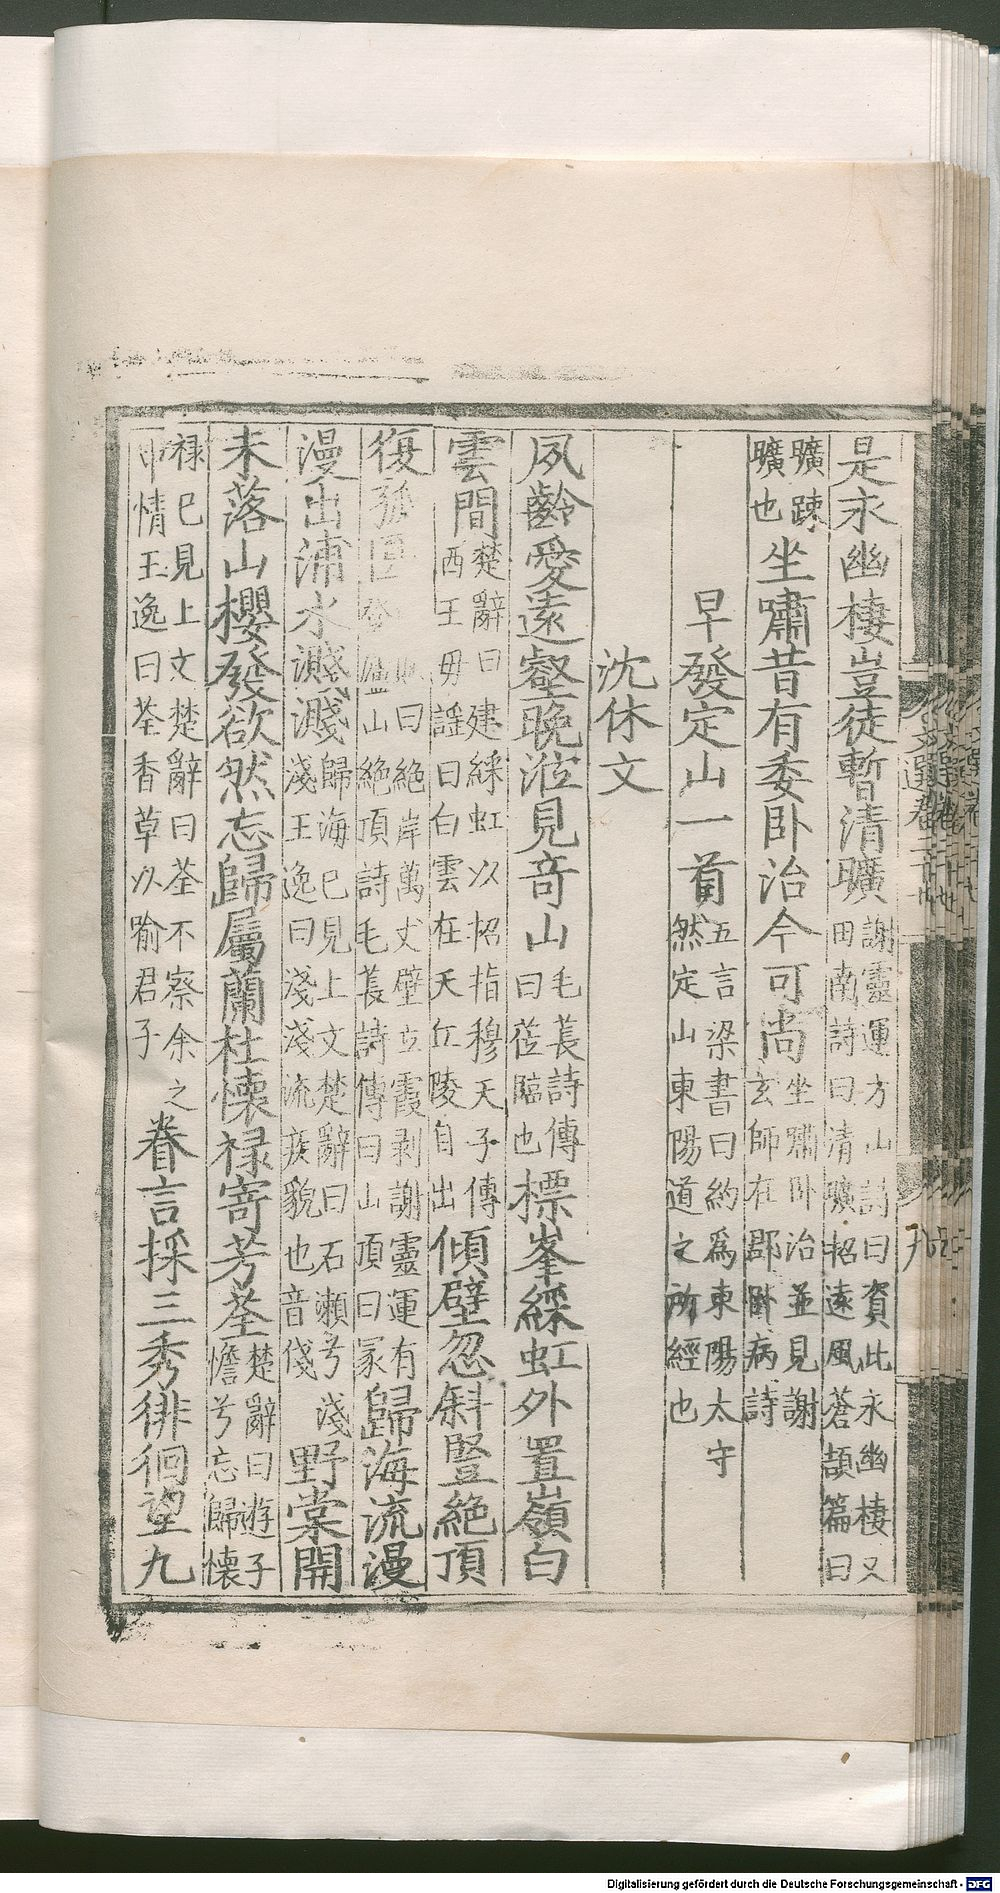 是永幽棲豈徒暫清曠謝靈運方山詩曰資此永幽棲又田南詩曰清曠招遠風蒼頡篇曰
曠疎曠也坐嘯昔有委卧治今可尚坐嘯卧治並見謝玄師在郡卧病詩
早發定山一首五言梁書曰約爲東陽太守然定山東陽道之所經也
沈休文
夙齡愛遠壑晚涖見奇山毛萇詩傳曰涖臨也標峯綵虹外置嶺白
雲間楚辭曰建綵虹以招指穆天子傳西王毋謡曰白雲在天丘陵自出傾壁忽斜豎絕頂
復孤曰絕岸萬丈壁立霞剥謝靈運有山絕頂詩毛萇詩傳曰山頂曰冢歸海流漫
漫出浦水濺濺歸海巳見上文楚辭曰石瀨兮淺淺王逸曰淺淺流疾貌也音俴野棠開
未落山櫻發欲然忘歸屬蘭杜懷禄寄芳荃楚辭曰遊子憺兮忘歸懷
禄巳見上文楚辭曰荃不察余之情王逸曰荃香草以喻君子眷言採三秀徘徊望九
Digitalisierung gefördert durch die Deutsche Forschungsgemeinschaft - DFG